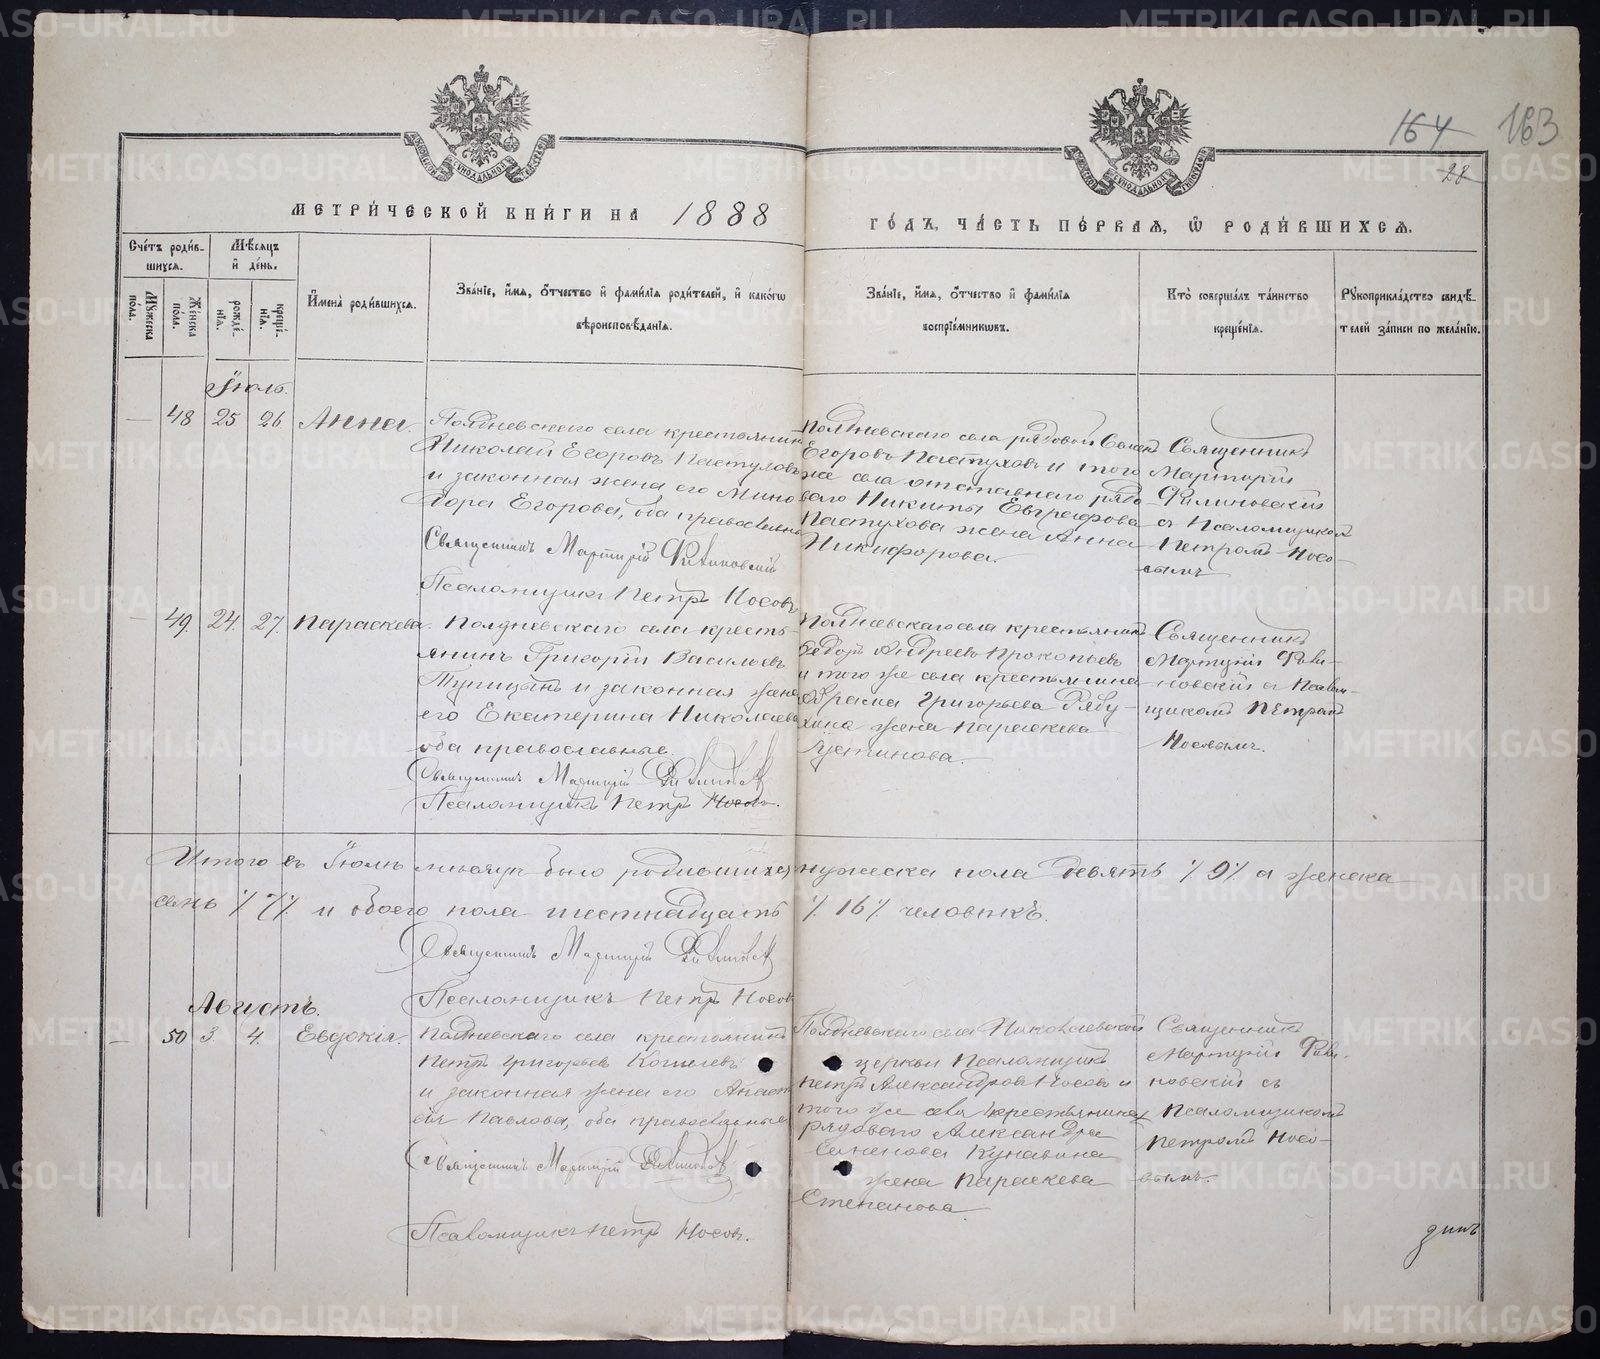 164 163
28
МЕТРИ́ЧЕСКОЙ КНИ́ГИ НА 1888
ГО́ДЪ, ЧА́СТЬ ПЕ́РВАЯ, Ѡ РОДИ́ВШИХСЯ.
Сче́тъ роди́в-
шихся.
Мѣ́сяцъ
и҆ де́нь.
Мꙋжеска
по́ла.
Же́нска
по́ла.
рожде́-
нїя.
креще́-
нїя.
И҆мена̀ роди́вшихся.
Зва́нїе, и҆́мя, ѻ҆́тчество и҆ фами́лїя роди́телей, и҆ како́гѡ
вѣроисповѣ́данїя.
Зва́нїе, и҆́мя, ѻ҆́тчество и҆ фами́лїя
воспрїе́мникѡвъ.
Кто̀ соверша́лъ та́инство
креще́нїя.
Рꙋкоприкла́дство свидѣ́-
телей за́писи по жела́нїю.
Іюль.
— 48 25 26 Анна.
Полдневскаго села крестьянинъ
Николай Егоровъ Пастуховъ
и законная жена его Мино
дора Егорова, оба православны
Священникъ Мартирій Филиновскій
Псаломщикъ Петръ Носовъ
Полдневскаго села рядовой
Егоровъ Пастуховъ и того
же села отставнаго рядо
ваго Никиты Евграфова
Пастухова жена Анна
Никифорова.
Священникъ
Мартирій
Филиновскій
съ Псаломщикомъ
Петромъ Носо-
вымъ
— 49. 24. 27. Параскева.
Полдневскаго села кресть-
янинъ Григорій Васильевъ
Тупицынъ и законная жена
его Екатерина Николаева
оба православные.
Священникъ Мартирій Филиновск
Псаломщикъ Петръ Носовъ.
Полдневскаго села крестьянинъ
Ѳедоръ Андреевъ Прокопьевъ
и того же села крестьянина
Абрама Григорьева Рябу-
хина жена Параскева
Устинова.
Священникъ
Мартирій Фили-
новскій съ Псалом-
щикомъ Петромъ
Носовымъ.
Итого въ Іюлѣ мѣсяцѣ было родившихся мужеска пола девять ./.9./. а женска
семь ./.7./. и обоего пола шестнадцать ./.16./. человѣкъ.
Священникъ Мартирій Филиновск
Псаломщикъ Петръ Носовъ
Августъ.
— 50 3. 4. Евдокія.
Полдневскаго села крестьянинъ
Петръ Григорьевъ Кошелевъ
и законная жена его Анаст
сія Павлова, оба православные
Священникъ Мартирій Филиновск
Псаломщикъ Петръ Носовъ.
Полдневскаго села Николаевской
церкви Псаломщикъ
Петръ Александровъ Носовъ и
того же села крестьянина
рядоваго Александра
Семенова Кунавина
жена Параскева
Степанова.
Священникъ
Мартирій Фили-
новскій съ
Псаломщикомъ
Петромъ Носо-
вымъ.
METRIKI.GASO-URAL.RU